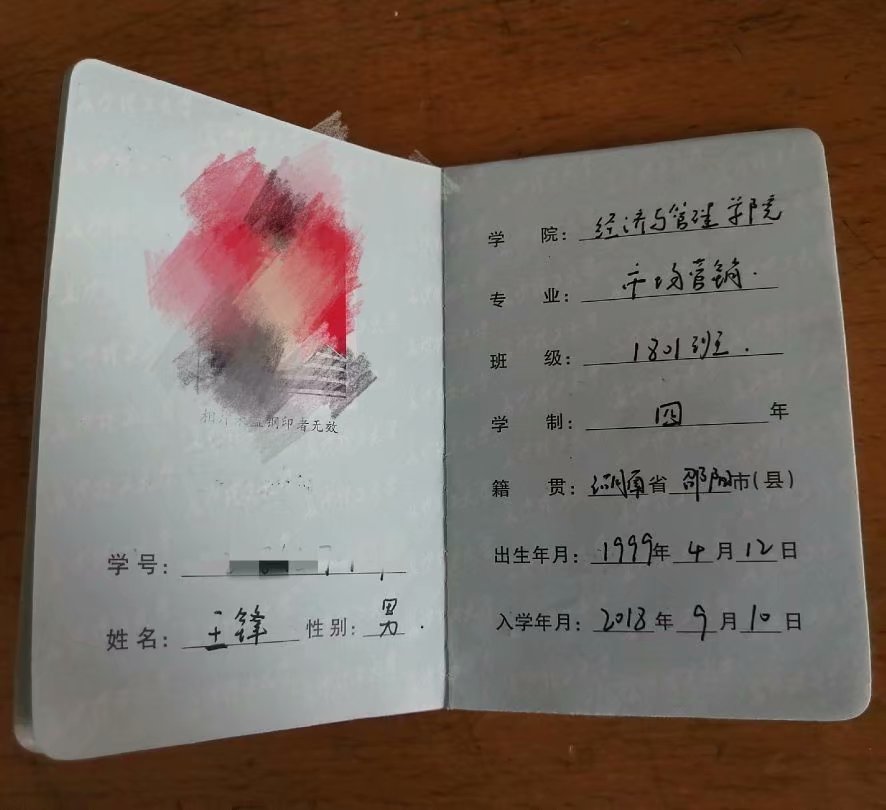 相片未盖钢印者无效
学号:
姓名: 王锋 性别: 男
学 院: 经济与管理学院
专 业: 市场营销
班 级: 1801班
学 制: 四 年
籍 贯: 湖南省 邵阳市(县)
出生年月: 1999年 4月12日
入学年月: 2018年 9月10日